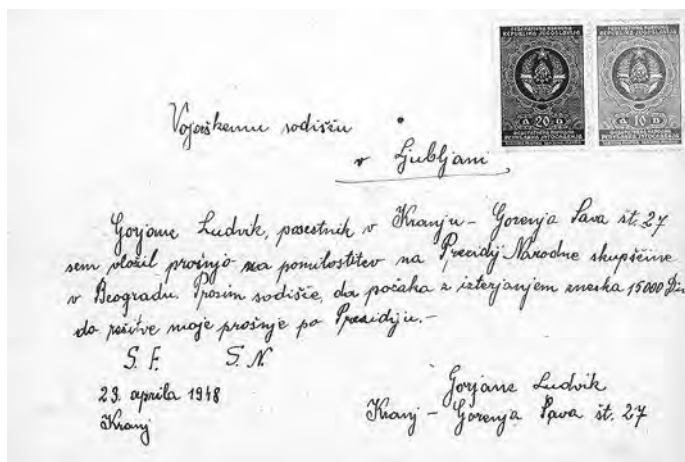 FEDERATIVNA NARODNA
REPUBLIKA JUGOSLAVIJA
D 20 D
D 10 D
Vojaškemu sodišču
v Ljubljani
Gorjanc Ludvik, posestnik v Kranju - Gorenja Sava št. 27
sem vložil prošnjo za pomilostitev na Prezidij Narodne skupščine
v Beogradu. Prosim sodišče, da počaka z izterjanjem zneska 15000 Din
do rešitve moje prošnje po Prezidiju.-
S. F. S. N.
23. aprila 1948
Kranj
Gorjanc Ludvik
Kranj - Gorenja Sava št. 27